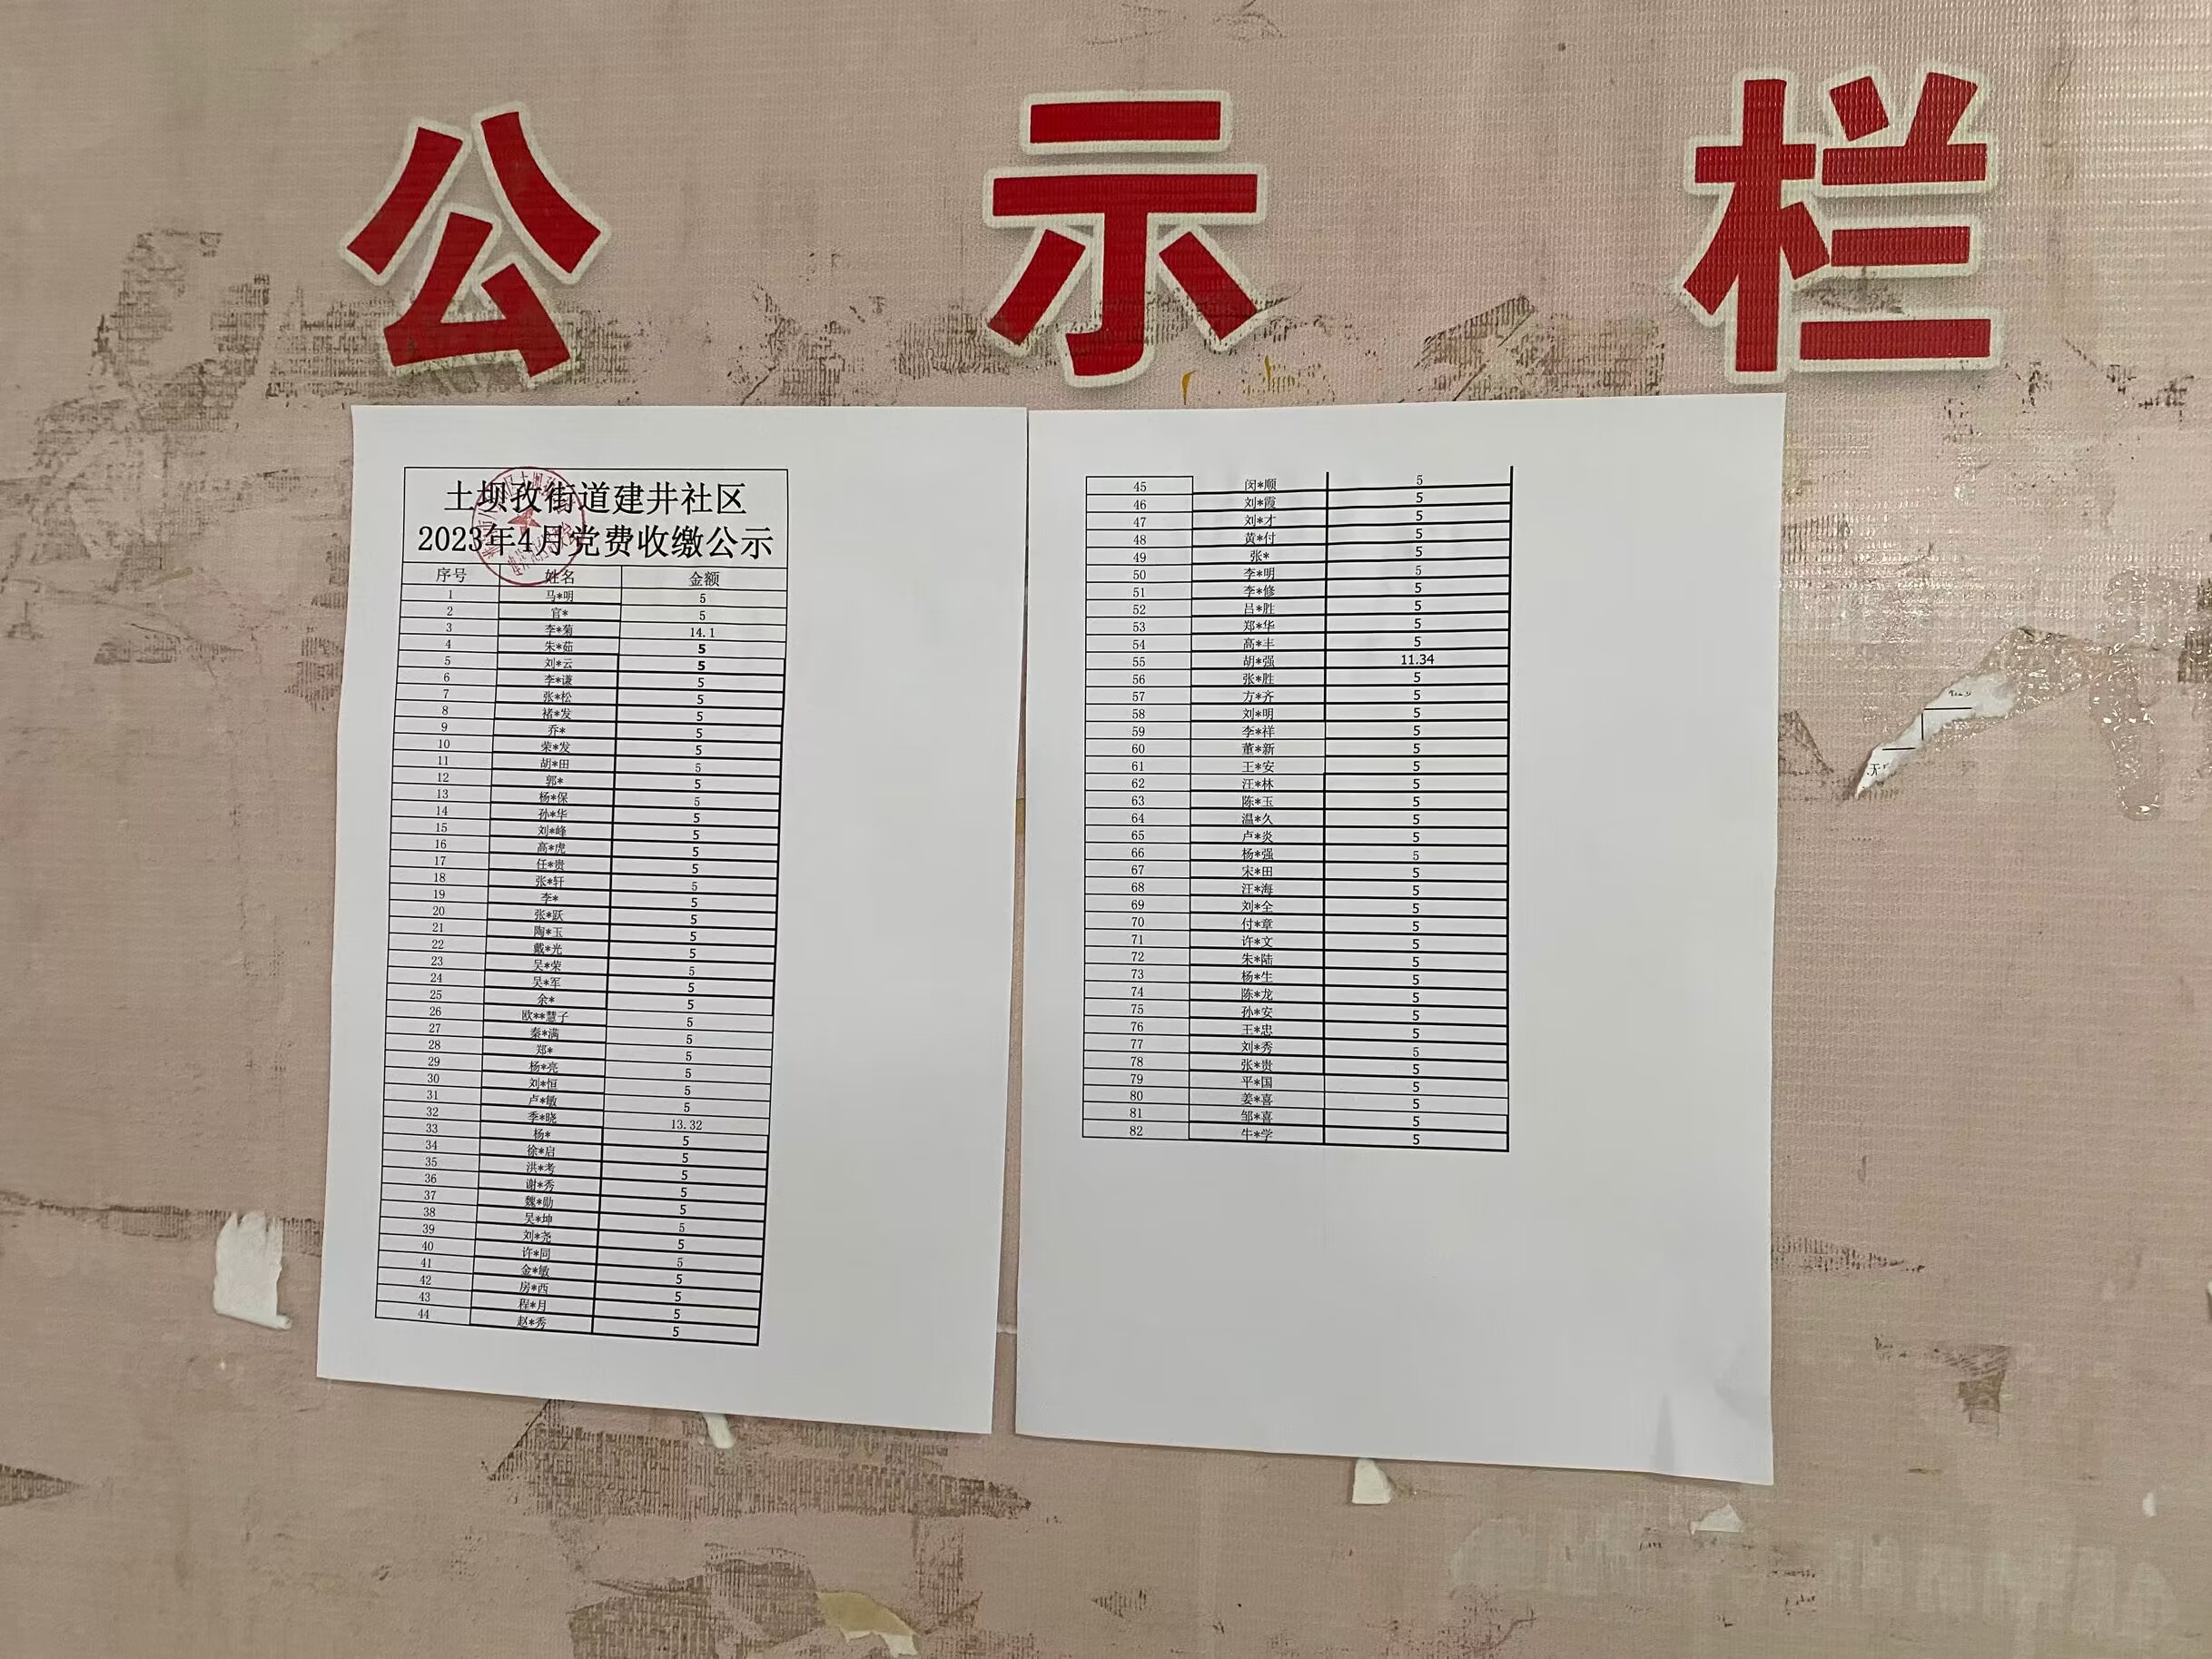 公示栏
土坝孜街道建井社区
2023年4月党费收缴公示
序号 姓名 金额
1 马*明 5
2 官* 5
3 李*菊 14.1
4 朱*茹 5
5 刘*云 5
6 李*谦 5
7 张*松 5
8 褚*发 5
9 乔* 5
10 荣*发 5
11 胡*田 5
12 郭* 5
13 杨*保 5
14 孙*华 5
15 刘*峰 5
16 高*虎 5
17 任*贵 5
18 张*轩 5
19 李* 5
20 张*跃 5
21 陶*玉 5
22 戴*光 5
23 吴*荣 5
24 吴*军 5
25 余* 5
26 欧**慧子 5
27 秦*满 5
28 郑* 5
29 杨*亮 5
30 刘*恒 5
31 卢*敏 5
32 季*晓 13.32
33 杨* 5
34 徐*启 5
35 洪*考 5
36 谢*秀 5
37 魏*勋 5
38 吴*坤 5
39 刘*尧 5
40 许*同 5
41 金*敏 5
42 房*西 5
43 程*月 5
44 赵*秀 5
45 闵*顺 5
46 刘*霞 5
47 刘*才 5
48 黄*付 5
49 张* 5
50 李*明 5
51 李*修 5
52 吕*胜 5
53 郑*华 5
54 高*丰 5
55 胡*强 11.34
56 张*胜 5
57 方*齐 5
58 刘*明 5
59 李*祥 5
60 董*新 5
61 王*安 5
62 汪*林 5
63 陈*玉 5
64 温*久 5
65 卢*炎 5
66 杨*强 5
67 宋*田 5
68 汪*海 5
69 刘*全 5
70 付*章 5
71 许*文 5
72 朱*陆 5
73 杨*生 5
74 陈*龙 5
75 孙*安 5
76 王*忠 5
77 刘*秀 5
78 张*贵 5
79 平*国 5
80 姜*喜 5
81 邹*喜 5
82 牛*学 5